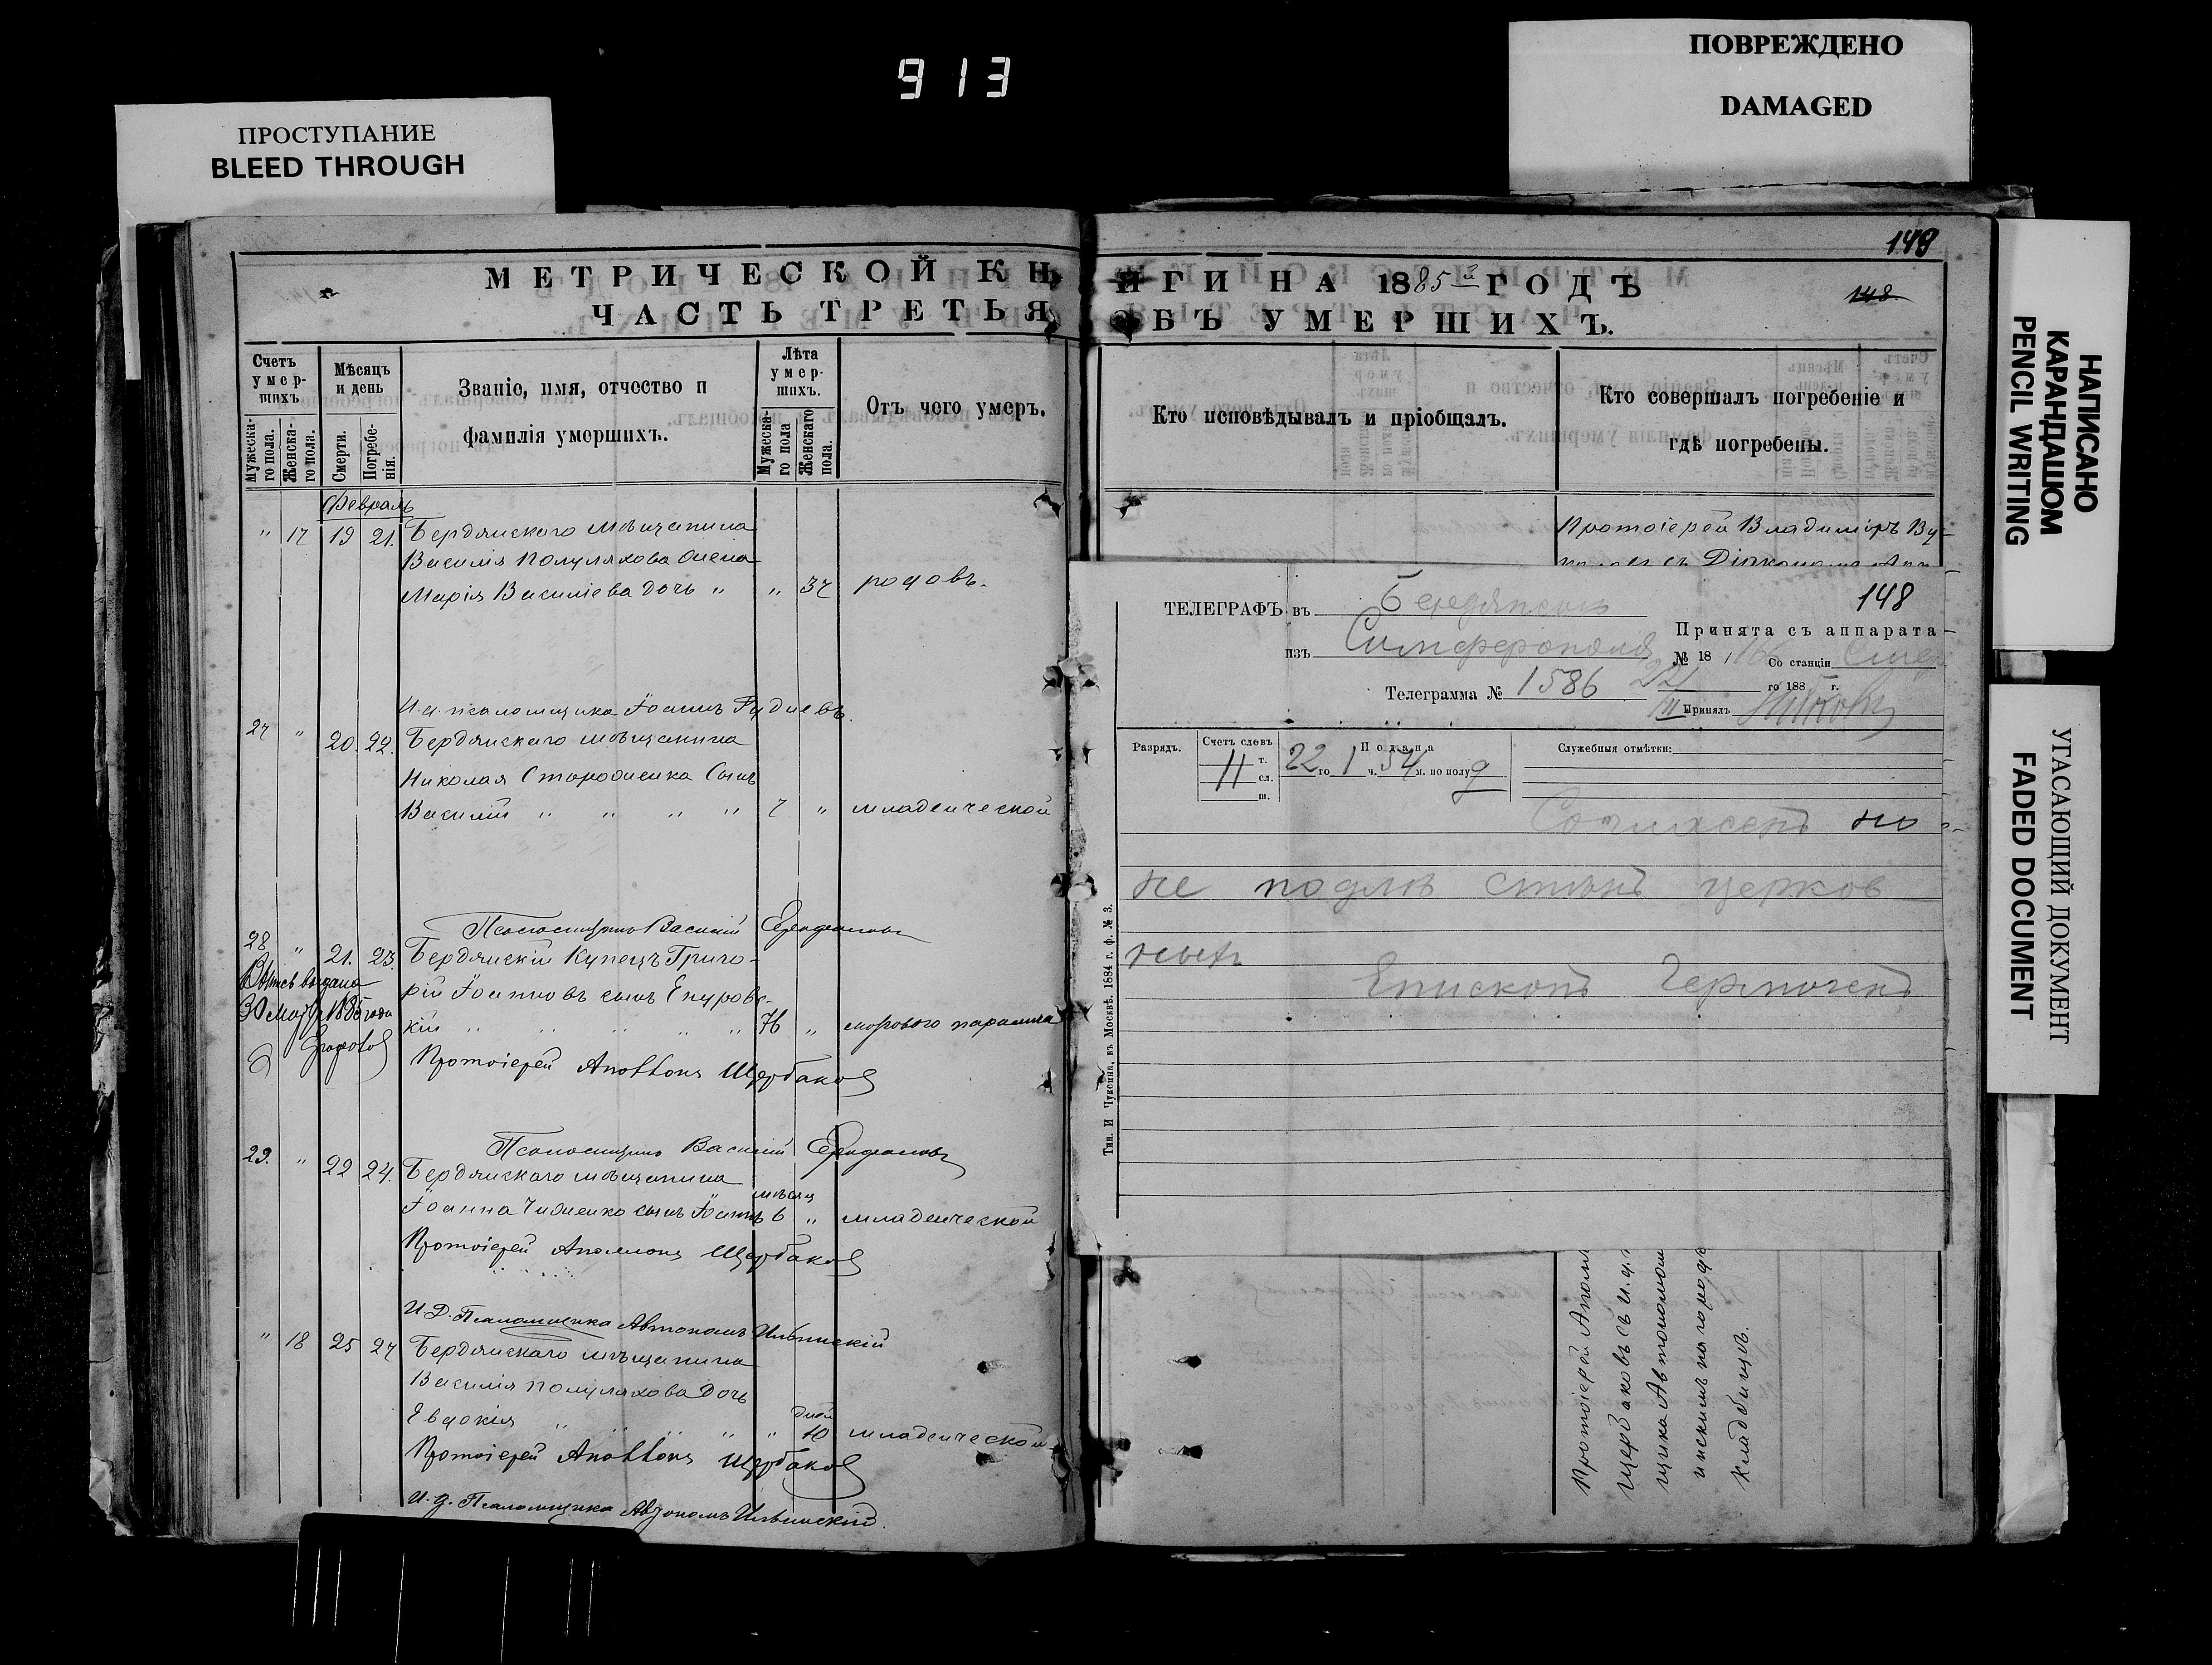 913
ПРОСТУПАНИЕ
BLEED THROUGH
ПОВРЕЖДЕНО
DAMAGED
НАПИСАНО
КАРАНДАШОМ
PENCIL WRITING
УГАСАЮЩИЙ ДОКУМЕНТ
FADED DOCUMENT
МЕТРИЧЕСКОЙ КН
ЧАСТЬ ТРЕТЬЯ
Счетъ умер-шихъ
Мужеска-го пола.
Женска-го пола.
Мѣсяцъ и день
Смерти.
Погребе-нія.
Званіе, имя, отчество и
фамилія умершихъ.
Лѣта умер-шихъ.
Мужеска-го пола
Женскаго пола.
Отъ чего умеръ.
Февраль
" 17 19 21. Бердянскаго мѣщанина
Василія Полуляхова жена
Марія Васильева дочь " " 37 родовъ.
И.д. псаломщика Іоаннъ
27 " 20. 22. Бердянскаго мѣщанина
Николая Стародиенка Сынъ
Василій " " " " 7 " младенческой
Псаломщикъ Василій
28 " 21. 23. Бердянскій Купецъ Григо-
рій Іоанновъ сынъ
кій " " " " " 76 "
выдана
30 1885 года
Протоіерей Аполлонъ Щербаковъ
Псаломщикъ Василій
29. " 22 24. Бердянскаго мѣщанина
мѣсяц
Іоанна сынъ Іоаннъ 6 " младенческой
Протоіерей Аполлонъ Щербаковъ
И.Д. Псаломщика Автономъ Ильинскій
" 18 25 27 Бердянскаго мѣщанина
Василія Полуляхова Дочь
дней
Евдокія " " " " " 10 младенческой
Протоіерей Аполлонъ Щербаковъ
И.д. Псаломщика Автономъ Ильинскій.
149
148
ИГИ НА 1885й ГОДЪ
ОБЪ УМЕРШИХЪ.
Кто исповѣдывалъ и пріобщалъ.
Кто совершалъ погребеніе и
гдѣ погребены.
Протоіерей Владиміръ
съ Діякономъ
148
ТЕЛЕГРАФЪ въ Бердянскъ
изъ Симферополя
Принята съ аппарата
№ 18 Со станціи
Телеграмма № 1586 22 го 188 г.
Принялъ
Разрядъ.
Счетъ словъ
т.
11 сл.
ш.
Подана
22 го 1 ч. 54 м. по полу д
Служебныя отмѣтки:
Согласенъ но
не подлѣ стѣнъ церков
ныхъ
Епископъ Гермогенъ
Тип. И Чуксина, въ Москвѣ. 1884 г. ф. № 3.
Протоіерей Аполл
Щербаковъ съ и.д.
щика Автономом
инскимъ на городс
кладбищѣ.